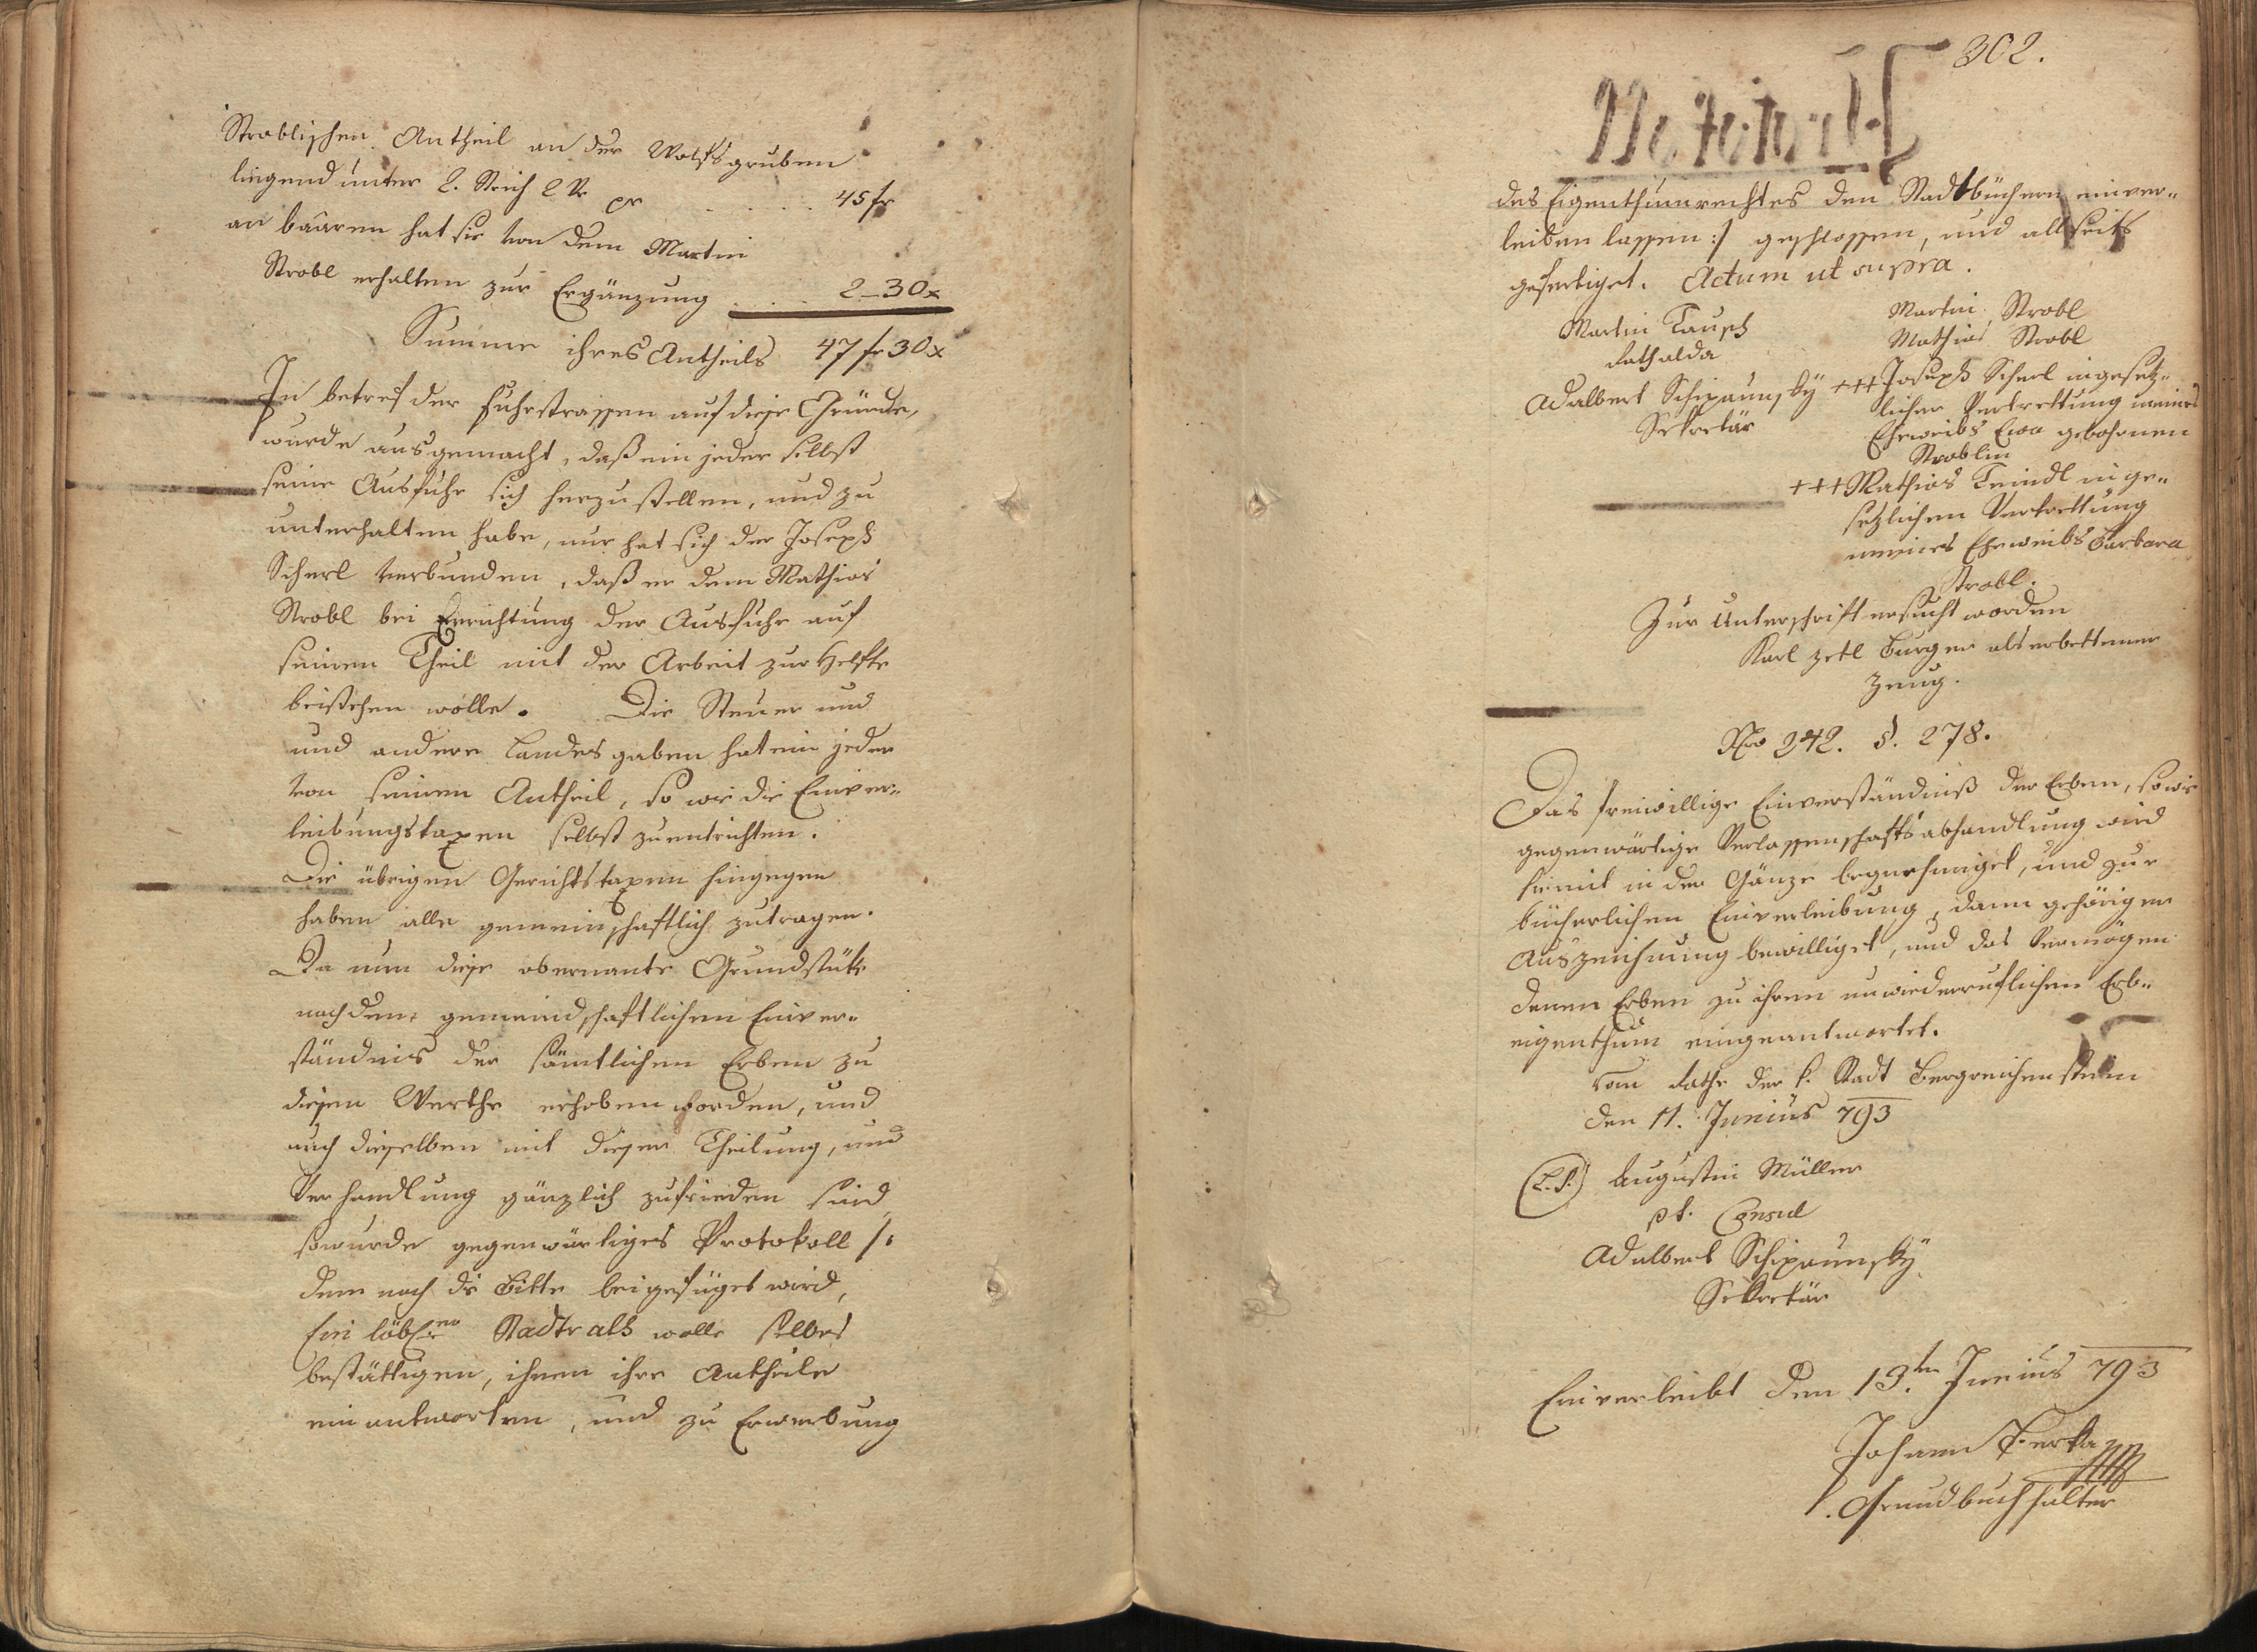 Stroblischen Antheil an der Wolfsgruben
liegend unter 2. Strich 2 Vr pr . . . . . 45 fr
an baaren hat sie von dem Martin
Strobl erhalten zur Ergänzung . . . . 2_30x
Summe ihres Antheils 47 fr 30x
In betref der Fuhrstrassen auf diese Gründe,
wurde ausgemacht, daß ein jeder selbst
seine Ausfuhr sich herzustellen, und zu
unterhalten habe, nur hat sich der Joseph
Scherl verbunden, daß er dem Mathias
Strobl bei Errichtung der Ausfuhr auf
seinen Theil mit der Arbeit zur Helfte
beistehen wolle. Die Steuer und
und andere Landesgaben hat ein jeder
von seinem Antheil, so wie die Einver„
leibungstaxen selbst zu entrichten.
Die übrigen Gerichtstaxen hingegen
haben alle gemeinschaftlich zutragen.
Da nun diese obernante Grundstüke
nach dem gemeindschaftlichen Einver„
ständnis der sämtlichen Erben zu
diesem Werthe erhoben worden, und
auch dieselben mit dieser Theilung, und
Verhandlung gänzlich zufrieden sind
so wurde gegenwärtiges Protokoll /:
dem noch die Bitte beigefüget wird,
Ein löbl. Stadtrath wolle selbes
bestättigen, ihnen ihre Antheile
einantworten, und zu Erwerbung
302.
des Eigenthumrechtes den Stadtbüchern einver„
leiben lassen :/ geschlossen, und allseits
gefertiget. Actum ut supra.
Martin Tausch
Rathalda
Adalbert Schipaunsky
Sekretär
Martin Strobl
Mathias Strobl
+++ Joseph Scherl in gesetz„
licher Vertrettung meines
Eheweibs Eva gebohrnen
Stroblin
+++ Mathias Teindl in ge„
setzlichen Vertrettung
meines Eheweibs Barbara
Strobl.
Zur Unterschrift ersucht worden
Karl Zetl Burger als erbettener
Zeug.
Nro 242. §. 278.
Das freiwillige Einverständniß der Erben, so wie
gegenwärtige Verlassenschaftsabhandlung wird
hiemit in der Gänze begnehmiget, und zur
bücherlichen Einverleibung, dann gehörigen
Auszeichnung bewilliget, und das Vermögen
denen Erben zu ihren unwiederruflichen Erb„
eigenthum eingeantwortet.
Vom Rathe der k. Stadt Bergreichenstein
den 11. Junius 793
(L.S.) Augustin Müller
pt. Consul
Adalbert Schipaunsky
Sekretär
Einverleibt den 13.ten Junius 793
Johann Perka
Grundbuchhalter